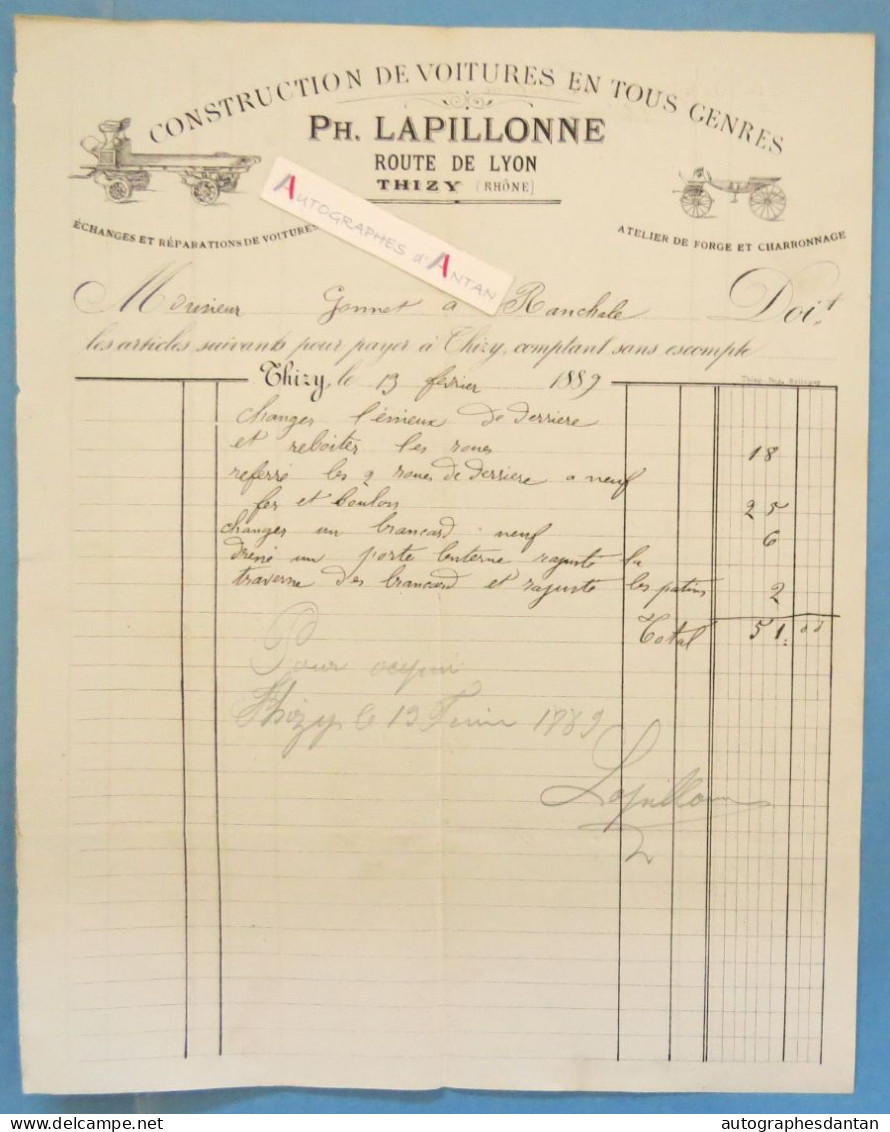 CONSTRUCTION DE VOITURES EN TOUS GENRES
PH. LAPILLONNE
ROUTE DE LYON
THIZY (RHÔNE)
AUTOGRAPHES d'ANTAN
ÉCHANGES ET RÉPARATIONS DE VOITURES
ATELIER DE FORGE ET CHARRONNAGE
Monsieur Gonnet a Ranchale Doit
les articles suivants pour payer à Thizy, comptant sans escompte
Thizy, le 13 février 1889
changer l'éssieux de derriere
et reboiter les roues 18
referré les 2 roues de derriere a neuf
fer et boulons 25
changer un brancard neuf 6
dressé un porte lenterne rajusté la
traverse des brancard et rajusté les patins 2
Total 51.00
Pour acquit
Thizy le 13 Février 1889
Lapillonne
www.delcampe.net
autographesdantan